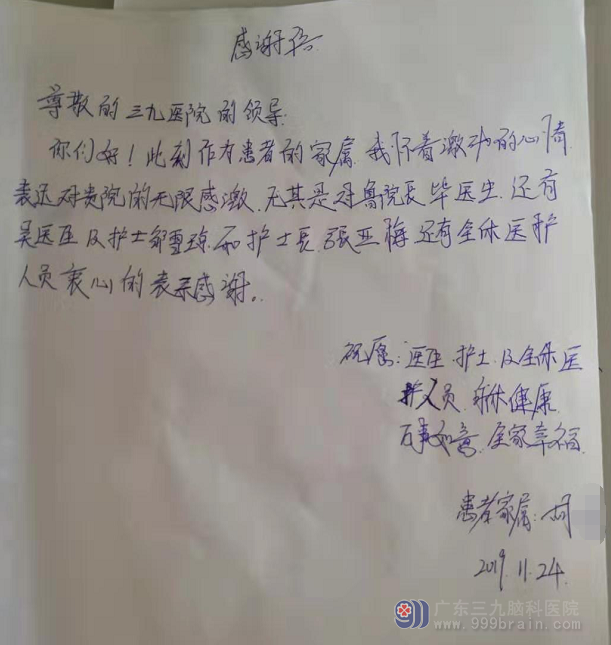 感谢信
尊敬的三九医院的领导:
你们好！此刻作为患者的家属，我怀着激动的心情
表达对贵院的无限感激，尤其是对鲁院长 毕医生，还有
吴医生及护士邹雪琼和护士长，张亚梅还有全体医护
人员衷心的表示感谢。
祝愿：医生 护士 及全体医
护人员，身体健康
万事如意，全家幸福，
患者家属：
2019.11.24.
广东三九脑科医院
www.999brain.com